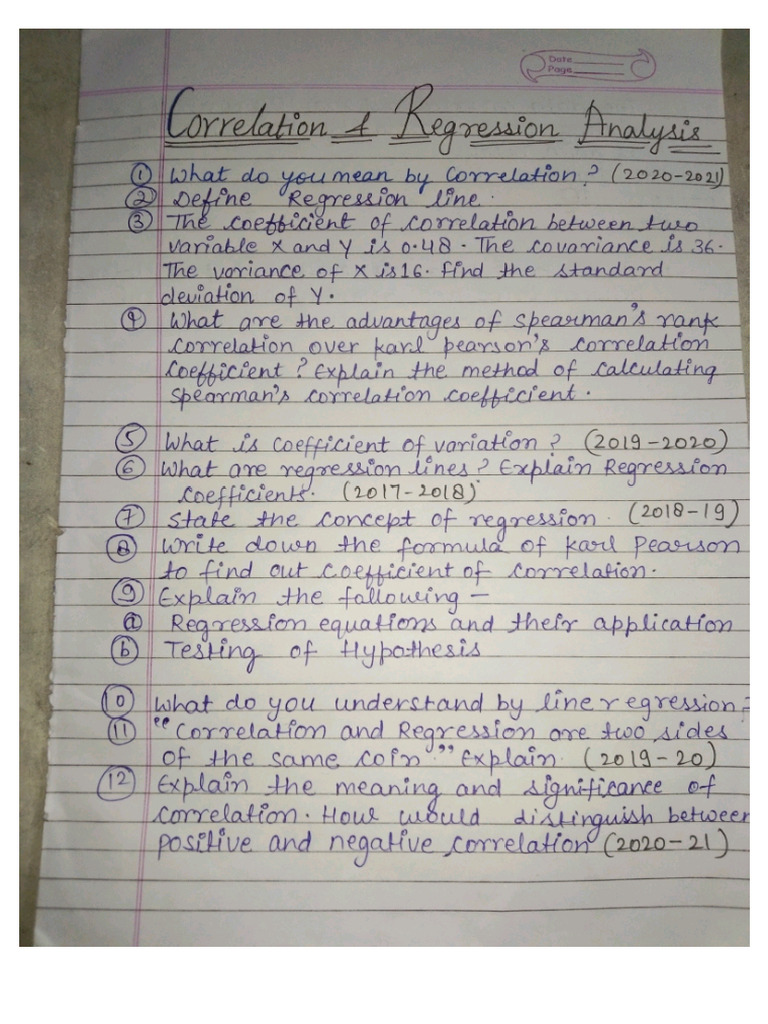 Date
Page
Correlation & Regression Analysis
① What do you mean by Correlation? (2020-2021)
② Define Regression line.
③ The coefficient of correlation between two
variable X and Y is 0.48. The covariance is 36.
The variance of X is 16. Find the standard
deviation of Y.
④ What are the advantages of Spearman's rank
correlation over karl pearson's correlation
coefficient? Explain the method of calculating
Spearman's correlation coefficient.
⑤ What is coefficient of variation? (2019-2020)
⑥ What are regression lines? Explain Regression
coefficients. (2017-2018)
⑦ State the concept of regression. (2018-19)
⑧ Write down the formula of Karl Pearson
to find out coefficient of correlation.
⑨ Explain the following -
ⓐ Regression equations and their application
ⓑ Testing of Hypothesis
⑩ What do you understand by line regression?
⑪ "Correlation and Regression are two sides
of the same coin." Explain. (2019-20)
⑫ Explain the meaning and significance of
correlation. How would distinguish between
positive and negative correlation (2020-21)